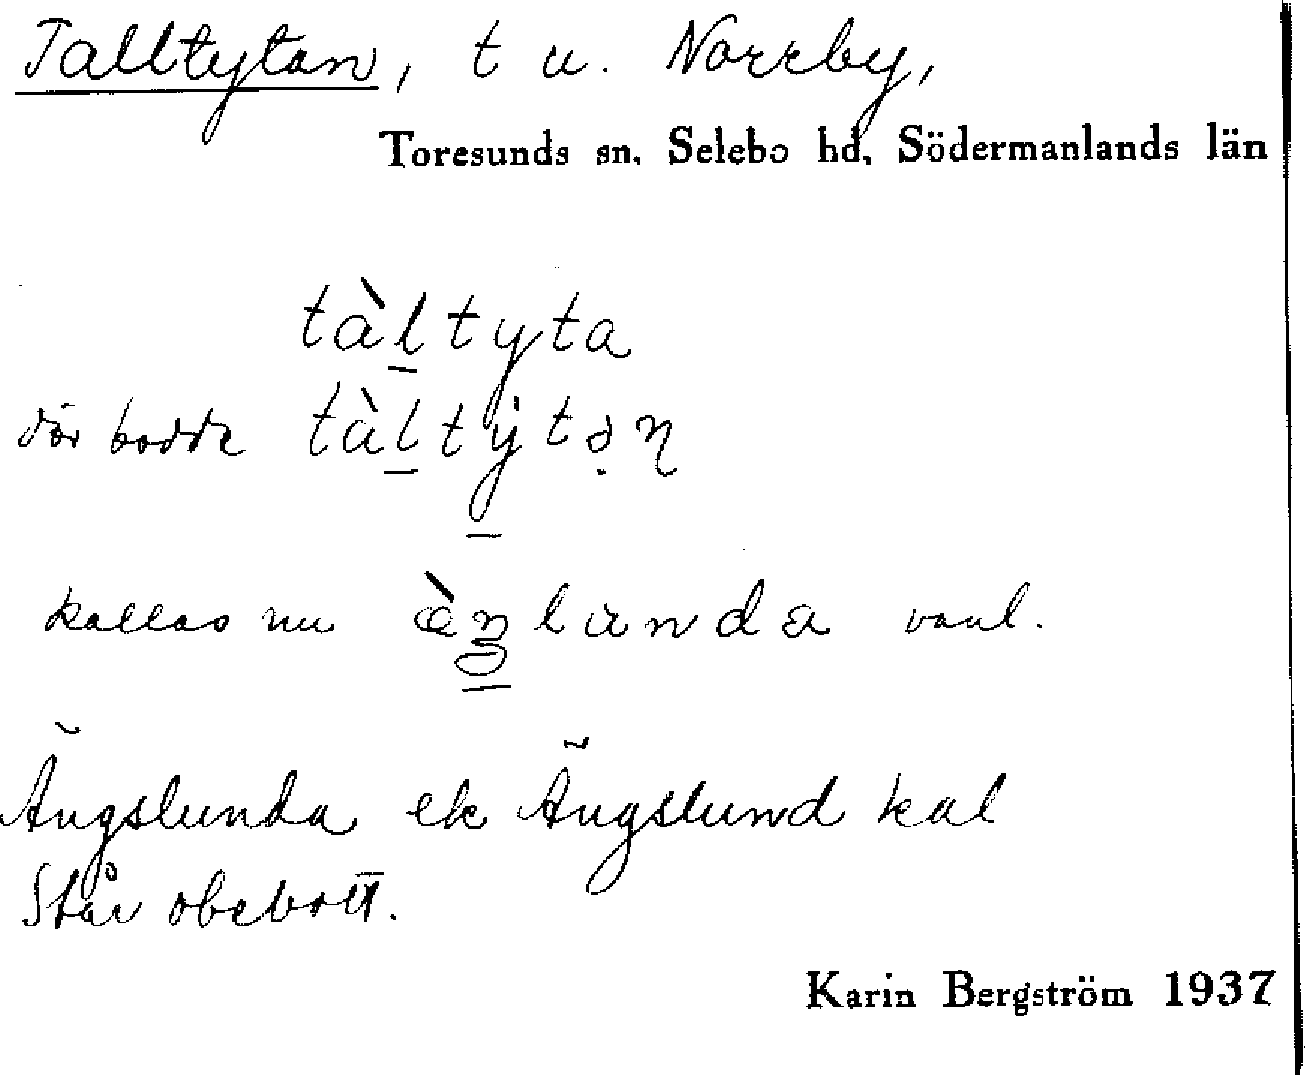 Talltytan, t u. Norrby,
Toresunds sn. Selebo hd. Södermanlands län
tàl̲tyta
där bodde tàl̲ty̲tə̣n
kallas nu æ̀ŋlunda vanl.
Ängslunda ek Ängslund kal
Står obebott.
Karin Bergström 1937